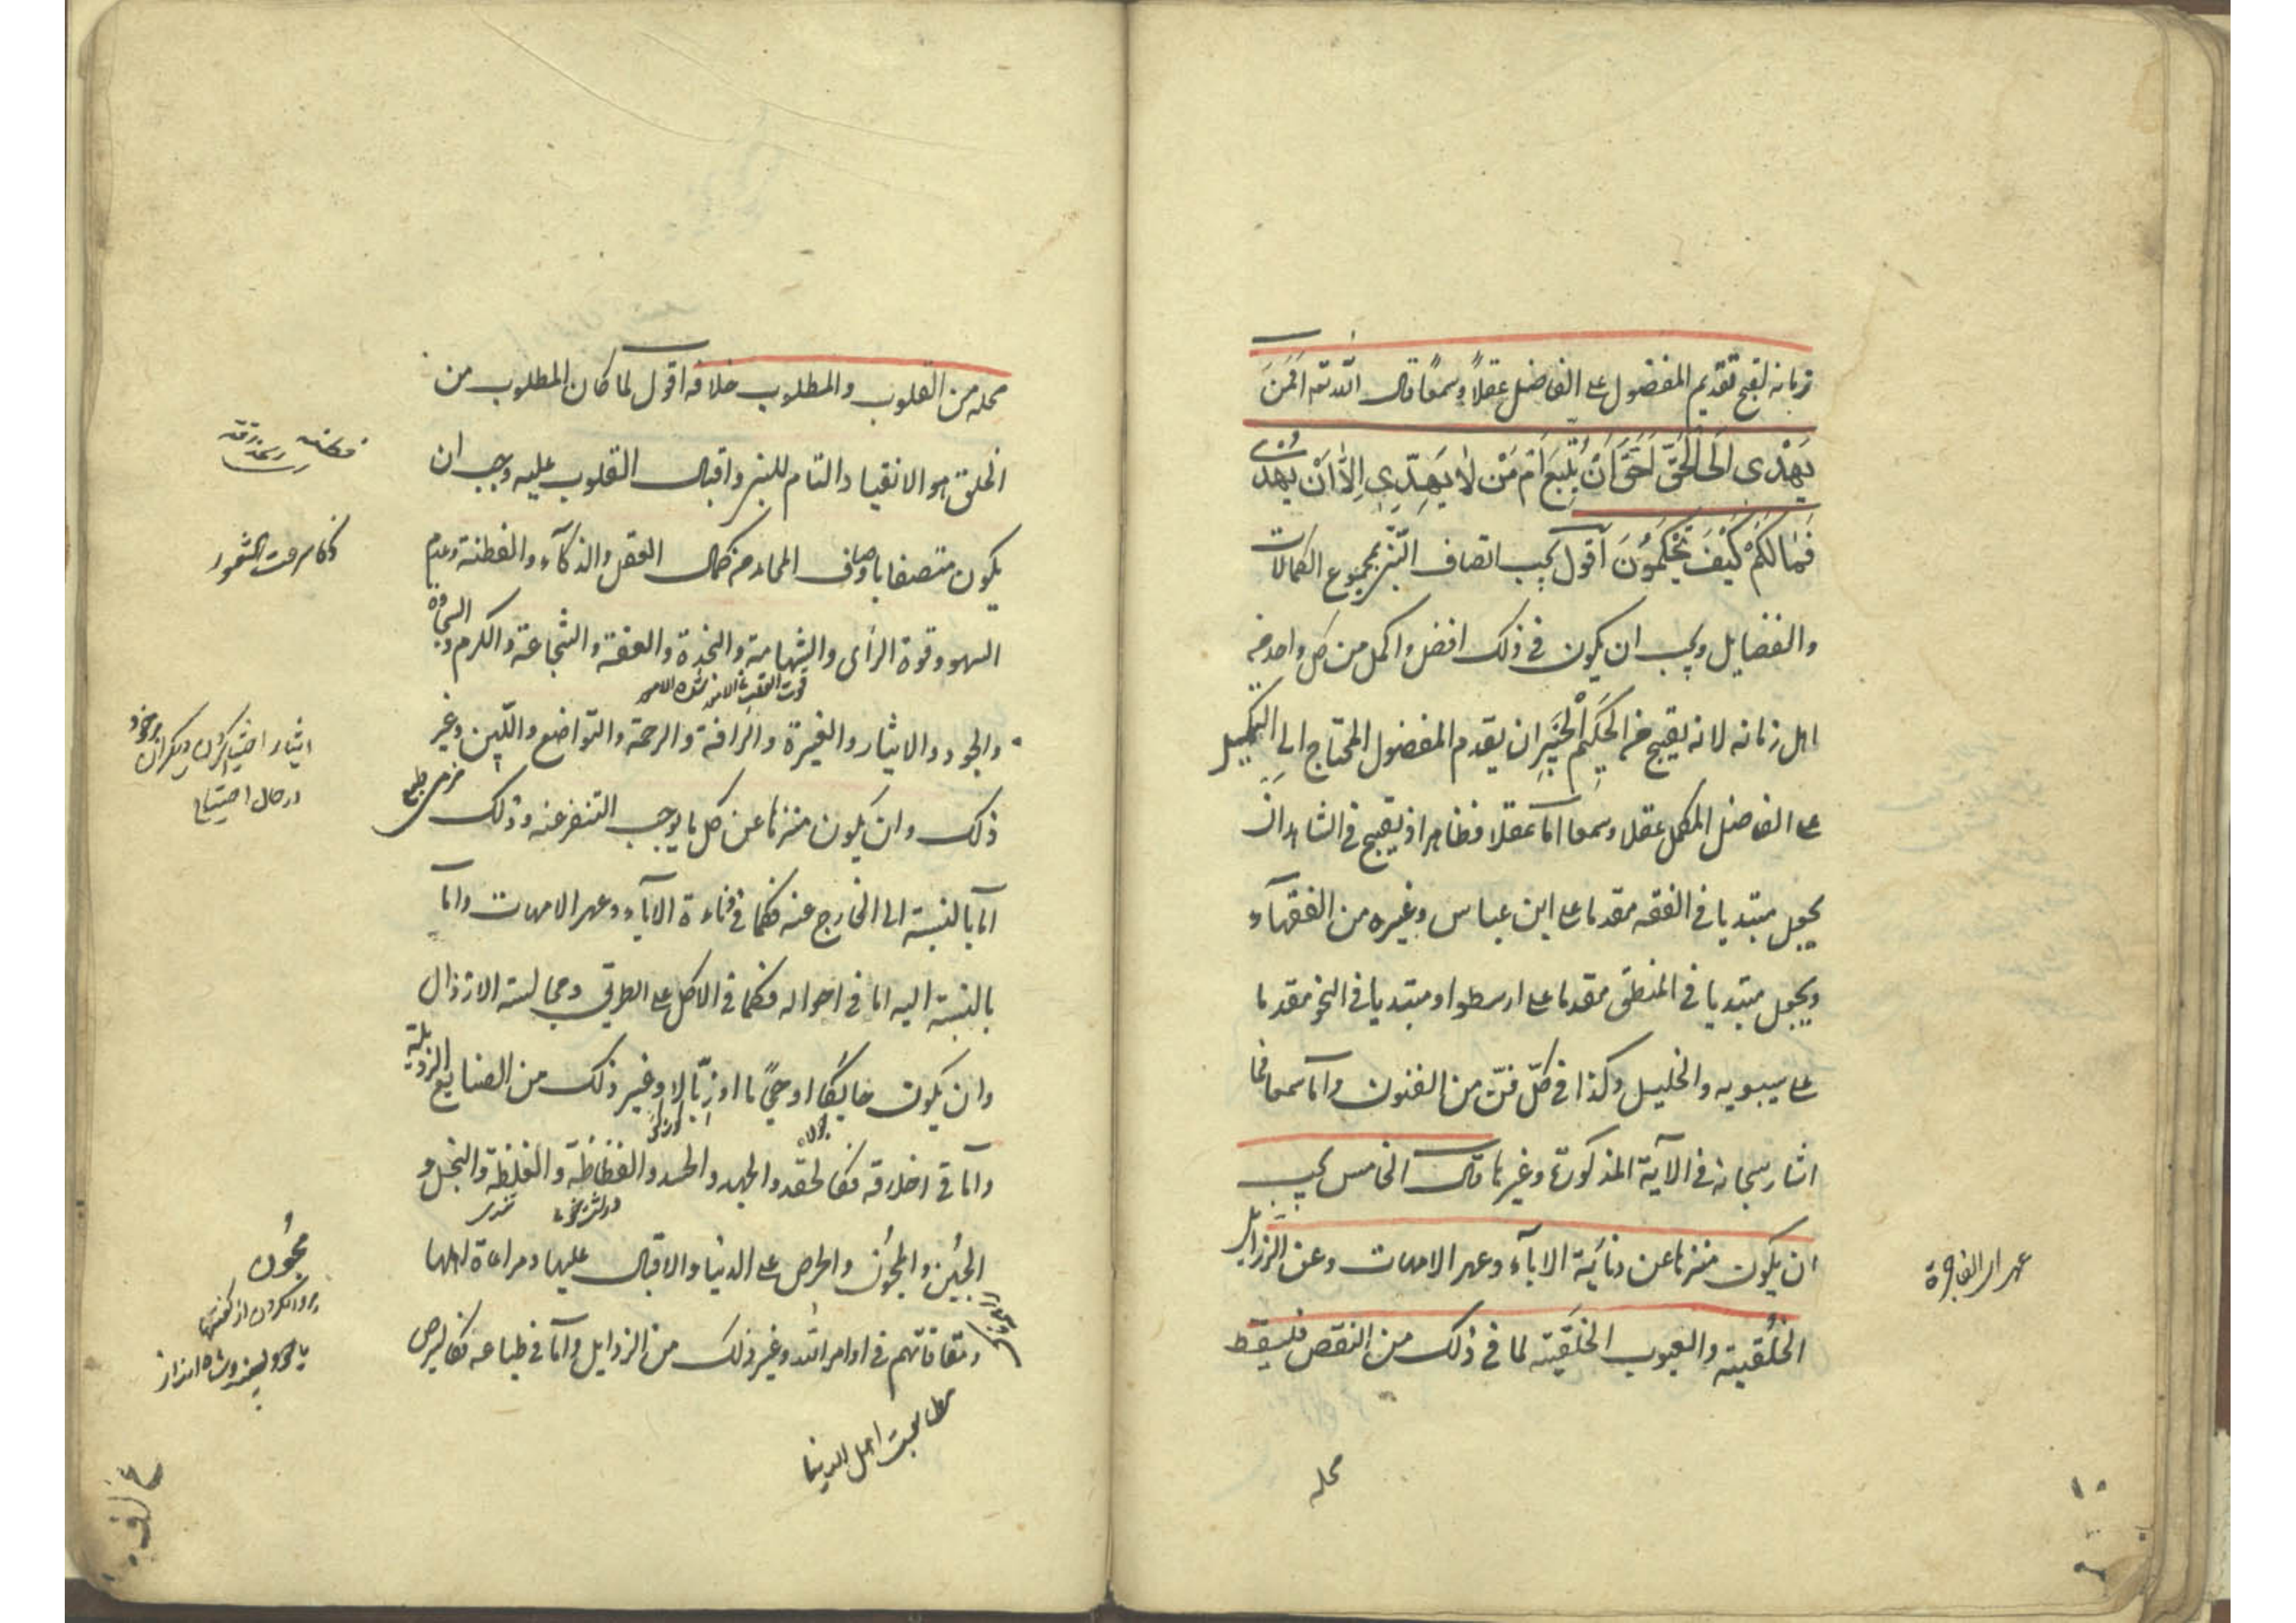 زمانه لقبح تقديم المفضول على الفاضل عقلاً وسمعًا قال الله تعه اَفَمَنْ
يَهْدى اِلَى الْحَقِّ اَحَقُّ اَنْ يُتَّبَعَ اَمْ مَنْ لا يَهِدّى اِلّا اَنْ يُهْدى
فَمالَكُمْ كَيْفَ تَحْكُمُونَ اقول يجب اتصاف النبى بمجموع الكمالات
والفضايل ويجب ان يكون فى ذلك افضل واكمل من كل واحد من
اهل زمانه لانه يقبح من الحَكيم الْخَبيرِ ان يقدم المفضول المحتاج الى التكميل
على الفاضل المكمل عقلا وسمعا اما عقلا فظاهر اذ يقبح فى الشاهد ان
يجعل مبتديا فى الفقه مقدما على ابن عباس وغيره من الفقهاء
ويجعل مبتديا فى المنطق مقدما على ارسطو او مبتديا فى النحو مقدما
على سيبويه والخليل وكذا فى كلّ فنّ من الفنون واما سمعا فما
اشار سبحانه فى الآية المذكورة وغيرها قال الخامس يجب
ان يكون منزها عن دنائة الاباء وعهر الامهات وعن الرذايل
الخُلُقية والعيوب الخَلقية لما فى ذلك من النقص فليسقط
محله
عهر الفاجرة
١٠
محله من القلوب والمطلوب خلافه اقول لما كان المطلوب من
الخلق هو الانقياد التام للنبى واقبال القلوب عليه وجب ان
يكون متصفا باوصاف المحامد من كمال العقل والذكاء والفطنة وعدم
السهو وقوة الرأى والشهامة والنجدة والعفة والشجاعة والكرم والسخاوة
والجود والايثار والغيرة والرافة والرحمة والتواضع واللين وغير
ذلك وان يكون منزها عن كل ما يوجب التنفر عنه وذلك
اما بالنسبة الى الخارج عنه فكما فى دناءة الآباء وعهر الامهات واما
بالنسبة اليه اما فى احواله فكما فى الاكل على الطريق ومجالسة الارذال
وان يكون حايكا او حجّاما او زبّالا وغير ذلك من الصنايع الرذيلة
واما فى اخلاقه فكالحقد والجهل والحسد والفظاظة والغلظة والبخل و
الجُبن والمجون والحرص على الدنيا والاقبال عليها ومراعاة اهلها
ومعافاتهم فى اوامر الله وغير ذلك من الرذايل واما فى طباعه فكالبرص
ذكا سرعت الشعور
ايثار اختيار كردن ديكران برخود
در حال احتياج
نرمى طبع
درشت خوى
تندى
مجون
پروا نكردن از كفتها
محبت اهل الدينا